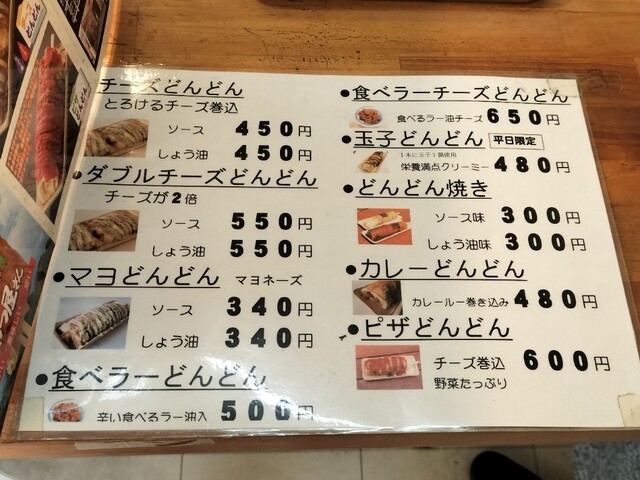 チーズどんどん
とろけるチーズ巻込
ソース 450円
しょう油 450円
●ダブルチーズどんどん
チーズが2倍
ソース 550円
しょう油 550円
●マヨどんどん マヨネーズ
ソース 340円
しょう油 340円
●食べラーどんどん
辛い食べるラー油入 500円
●食べラーチーズどんどん
食べるラー油チーズ 650円
●玉子どんどん 平日限定
1本に玉子1個使用
栄養満点クリーミー 480円
●どんどん焼き
ソース味 300円
しょう油味 300円
●カレーどんどん
カレールー巻き込み 480円
●ピザどんどん
チーズ巻込 600円
野菜たっぷり